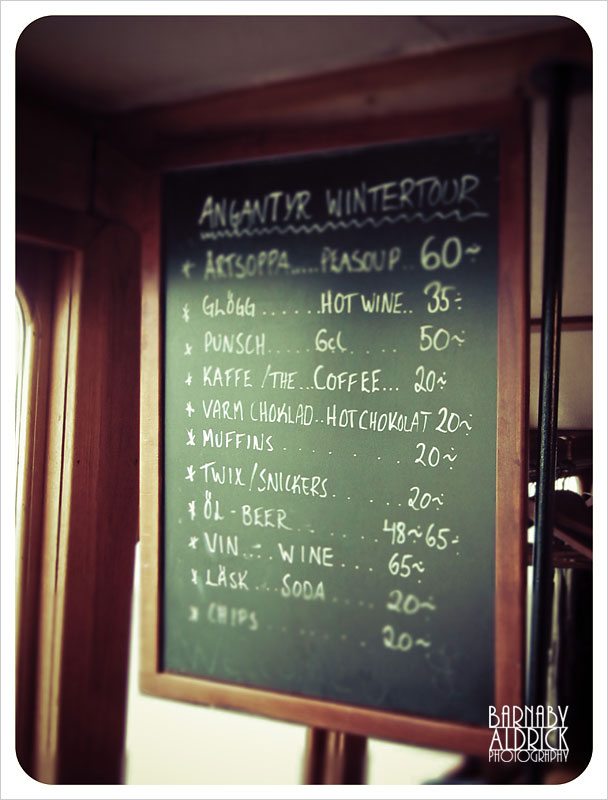 ANGANTYR WINTERTOUR
* ÄRTSOPPA.....PEASOUP.. 60:-
* GLÖGG......HOT WINE.. 35:-
* PUNSCH..... 6cl.... 50:-
* KAFFE/THE...COFFEE... 20:-
* VARM CHOKLAD..HOTCHOKOLAT 20:-
* MUFFINS....... 20:-
* TWIX/SNICKERS...... 20:-
* ÖL-BEER...... 48:-65:-
* VIN.... WINE.... 65:-
* LÄSK.... SODA.... 20:-
* CHIPS......... 20:-
BARNABY
ALDRICK
PHOTOGRAPHY